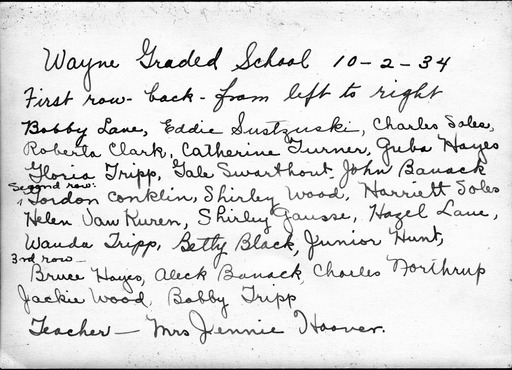 Wayne Graded School 10-2-34
First row - back - from left to right
Bobby Lane, Eddie Sustzuski, Charles Soles,
Roberta Clark, Catherine Turner, Guba Hayes
Gloria Tripp, Gale Swarthout, John Banack
Second row:
Gordon Conklin, Shirley Wood, Harriett Soles
Helen Van Kuren, Shirley Gausse, Hazel Lane,
Wanda Tripp, Betty Black, Junior Hunt,
3rd row -
Bruce Hayes, Aleck Banack, Charles Northrup
Jackie Wood, Bobby Tripp
Teacher - Mrs Jennie Hoover.